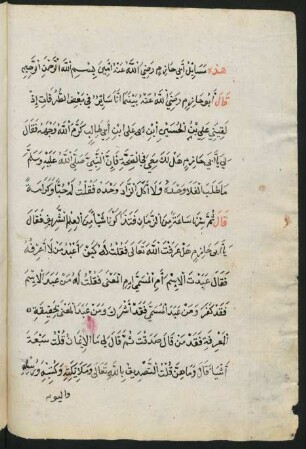 هذه مسايل أبي حازم رضي الله عنه آمين بسم الله الرحمن الرحيم
قال أبو حازم رضي الله عنه بينما أنا ساير في بعض الطرقات إذ
لقيني علي بن الحسين ابن علي ابن أبي طالب كرم الله وجهه فقال
لي يا أبي حازم هل لك معي في الصحبة فإن النبي صلى الله عليه وسلم
ما طلب الفلا وحده ولا أكل الزاد وحده فقلت له حبا وكرامة
قال ثم سرنا ساعة من الزمان فتذاكرنا شيا من العلم الشريف فقال
يا أبي حازم هل عرفت الله تعالى فقلت له كيف أعبد من لا أعرفه
فقال عبدت الاسم أم المسمى أم المعنى فقلت له من عبد الاسم
فقد كفر ومن عبد المسمى فقد أشرك ومن عبد المعنى بحقيقة
المعرفة فقد من قال صدقت ثم قال لي ما الإيمان قلت سبعة
أشيا قال وما هن قلت التصديق بالله تعالى وملائكته وكتبه ورسله
واليوم